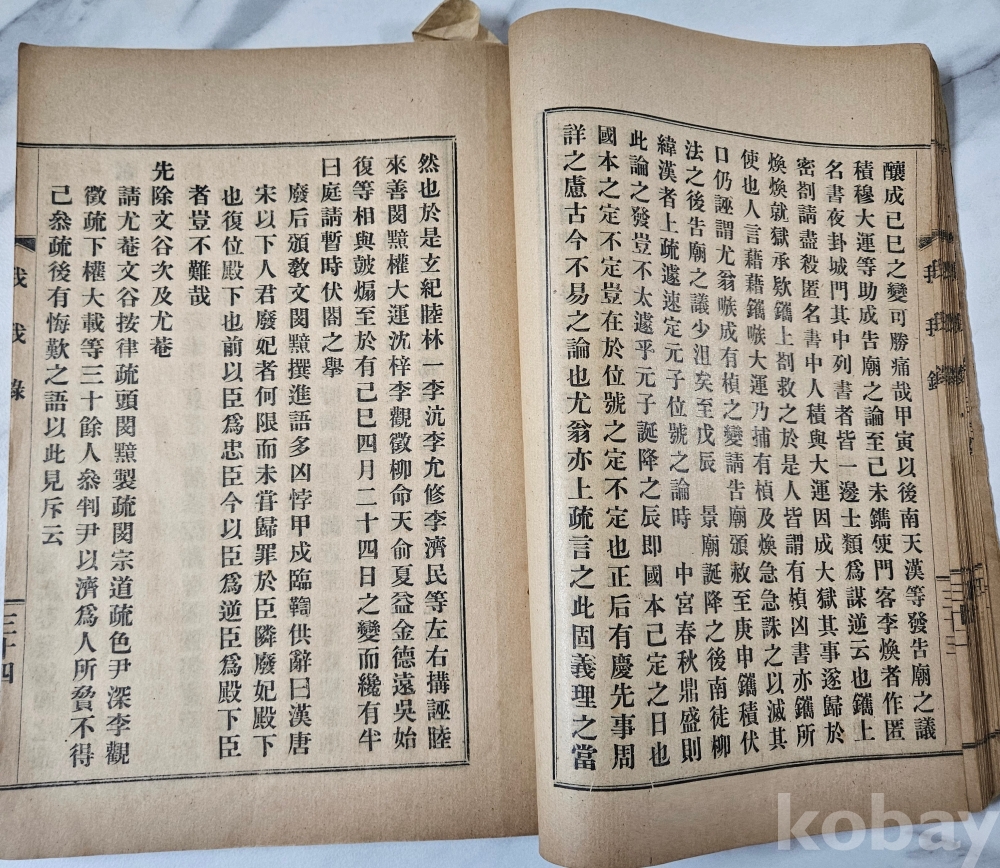 釀成己巳之變可勝痛哉甲寅以後南天漢等發告廟之議
積穆大運等助成告廟之論至己未鑴使門客李煥者作匿
名書夜卦城門其中列書者皆一邊士類爲謀逆云也鑴上
密剳請盡殺匿名書中人積與大運因成大獄其事遂歸於
煥煥就獄承欵鑴上剳救之於是人皆謂有楨凶書亦鑴所
使也人言藉藉鑴嗾大運乃捕有楨及煥急急誅之以滅其
口仍誣謂尤翁嗾成有楨之變請告廟頒赦至庚申鑴積伏
法之後告廟之議少沮矣至戊辰 景廟誕降之後南徒柳
緯漢者上疏遽速定元子位號之論時 中宮春秋鼎盛則
此論之發豈不太遽乎元子誕降之辰即國本已定之日也
國本之定不定豈在於位號之定不定也正后有慶先事周
詳之慮古今不易之論也尤翁亦上疏言之此固義理之當
然也於是玄紀睦林一李沆李允修李濟民等左右搆誣睦
來善閔黯權大運沈梓李觀徵柳命天俞夏益金德遠吳始
復等相與皷煽至於有己巳四月二十四日之變而纔有半
日庭請暫時伏閤之擧
廢后頒敎文閔黯撰進語多凶悖甲戌臨鞫供辭曰漢唐
宋以下人君廢妃者何限而未甞歸罪於臣隣廢妃殿下
也復位殿下也前以臣爲忠臣今以臣爲逆臣爲殿下臣
者豈不難哉
先除文谷次及尤菴
請尤菴文谷按律疏頭閔黯製疏閔宗道疏色尹深李觀
徵疏下權大載等三十餘人叅判尹以濟爲人所脅不得
已叅疏後有悔歎之語以此見斥云
我我錄
三十四
kobay